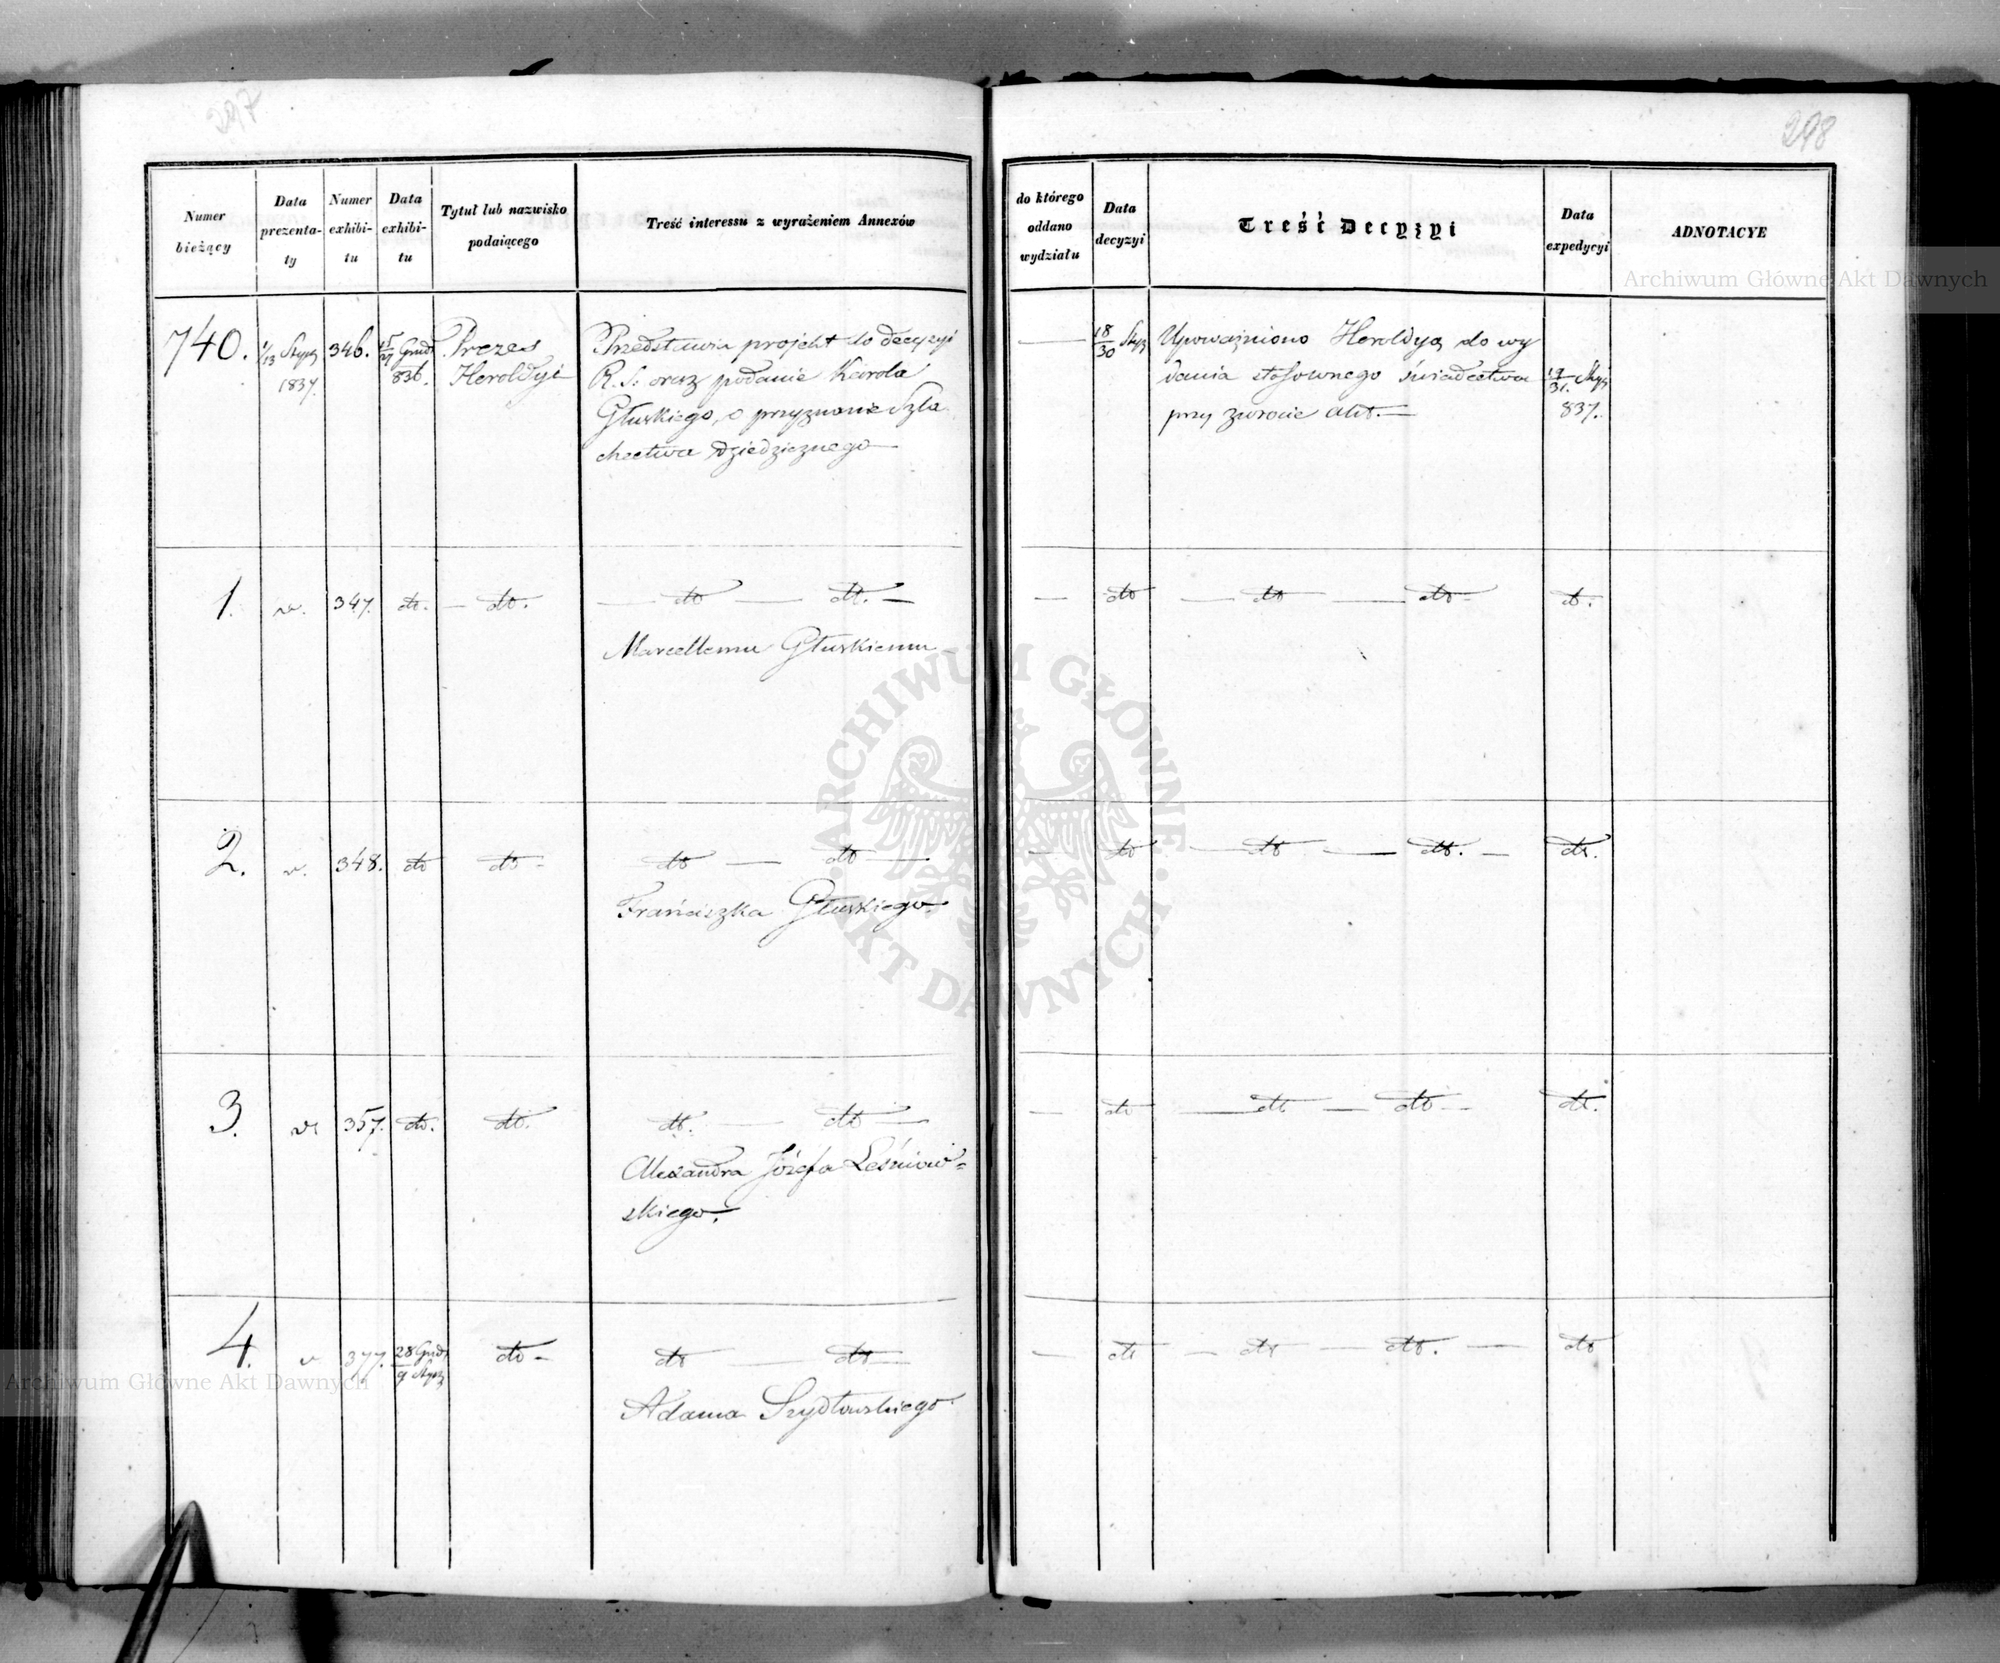 297
Numer
bieżący
Data
prezenta-
ty
Numer
exhibi-
tu
Data
exhibi-
tu
Tytuł lub nazwisko
podaiącego
Treść interessu z wyrażeniem Annexów
740.
1/13 Stycz
1837.
346.
15/27 Grud
836.
Prezes
Heroldyi
Przedstawia projekt do decyzyi
R. S: oraz podanie Karola
Głuskiego, o przyznanie Szla
chectwa dziedzicznego
1.
v.
347.
dto.
— dto.
— dto — dto. —
Marcellemu Głuskiemu
2.
v.
348.
dto
dto -
dto — dto —
Franciszka Głuskiego.
3.
v.
357.
dto.
dto.
dto. — dto —
Alexandra Józefa Leśniow=
skiego.
4.
v
377.
28 Grud
9 Stycz
dto -
dto — dto —
Adama Szydłowskiego
298
do którego
oddano
wydziału
Data
decyzyi
Treść Decyzyi
Data
expedycyi
ADNOTACYE
—
18/30 Stycz
Upoważniono Heroldyą do wy
dania stosownego świadectwa
przy zwrocie akt. —
19/31. Stycz
837.
— dto — dto — dto - dto.
— dto — dto — dto. — dto.
— dto — dto — dto — dto.
— dto — dto — dto. — dto
Archiwum Główne Akt Dawnych
ARCHIWUM GŁÓWNE
· AKT DAWNYCH ·
Archiwum Główne Akt Dawnych